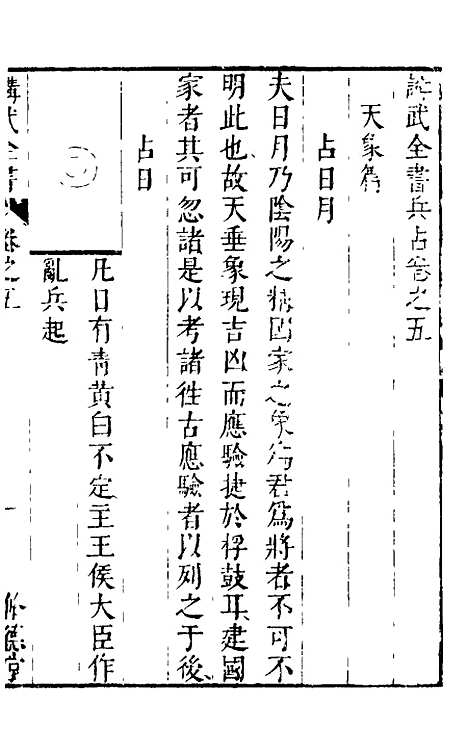 講武全書兵占卷之五
天象篇
占日月
夫日月乃陰陽之精國家之象為君爲將者不可不
明此也故天垂象現吉凶而應驗捷於桴鼓耳建國
家者其可忽諸是以考諸徃古應驗者以列之于後
占日
凡日有青黃白不定主王侯大臣作
亂兵起
講武全書
卷之五
一